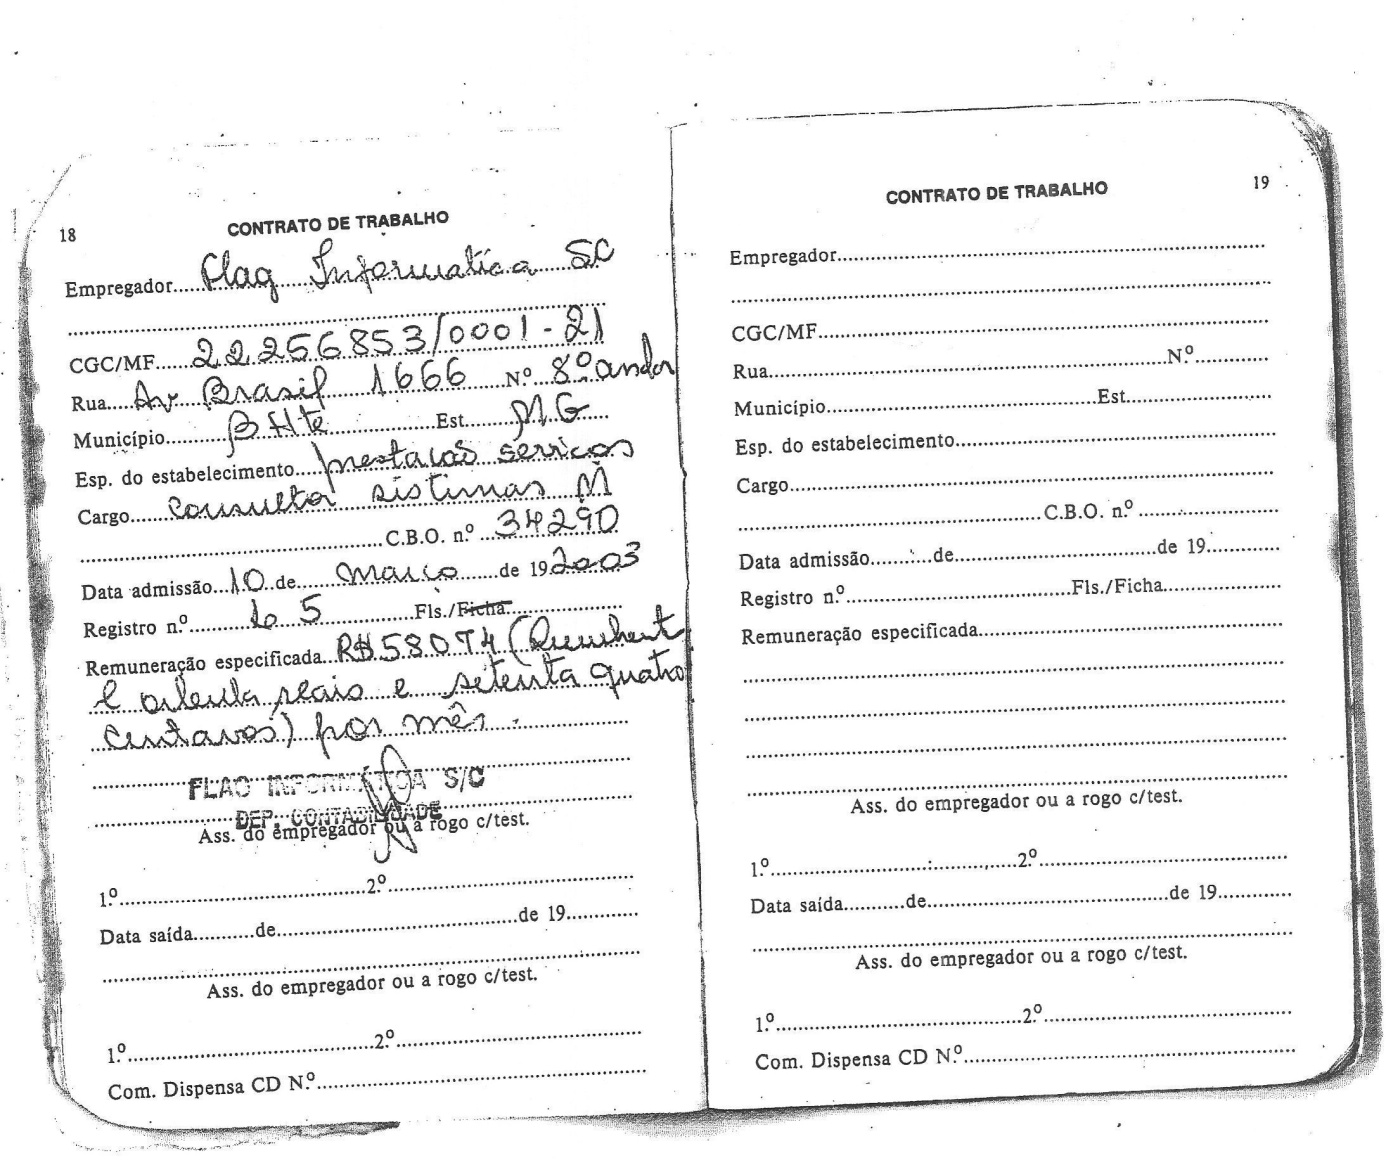 18
CONTRATO DE TRABALHO
Empregador Flag Informatica SC
CGC/MF 22256853/0001-21
Rua Av Brasil 1666 Nº 8º andar
Município B Hte Est MG
Esp. do estabelecimento prestacão servicos
Cargo Consultor sistemas M
C.B.O. n.º 34290
Data admissão 10 de Março de 19 2003
Registro n.º 105 Fls./Ficha
Remuneração especificada R$ 580,74 (Quinhent
e oitenta reais e setenta quatro
centavos) por mês.
FLAG INFORMÁTICA S/C
DEP. CONTABILIDADE
Ass. do empregador ou a rogo c/test.
1.º 2.º
Data saída de de 19
Ass. do empregador ou a rogo c/test.
1.º 2.º
Com. Dispensa CD N.º
19
CONTRATO DE TRABALHO
Empregador
CGC/MF
Rua N.º
Município Est.
Esp. do estabelecimento
Cargo
C.B.O. n.º
Data admissão de de 19
Registro n.º Fls./Ficha
Remuneração especificada
Ass. do empregador ou a rogo c/test.
1.º 2.º
Data saída de de 19
Ass. do empregador ou a rogo c/test.
1.º 2.º
Com. Dispensa CD N.º